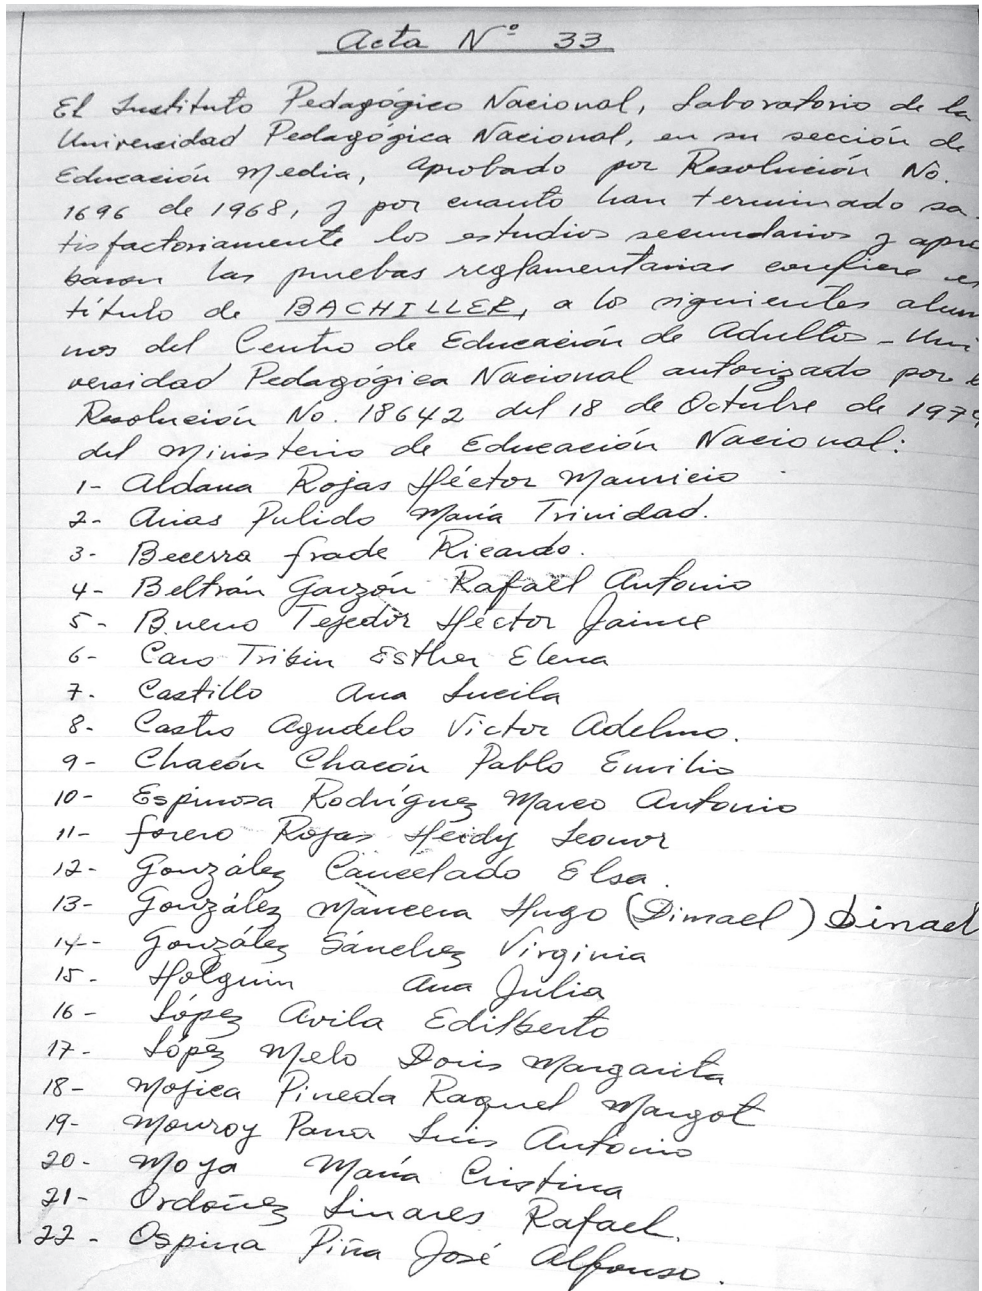 Acta Nº 33
El Instituto Pedagógico Nacional, Laboratorio de la
Universidad Pedagógica Nacional, en su sección de
Educación Media, aprobado por Resolución No.
1696 de 1968, y por cuanto han terminado sa-
tisfactoriamente los estudios secundarios y apro
baron las pruebas reglamentarias confiere
título de BACHILLER, a los siguientes alum
nos del Centro de Educación de Adultos - Uni
versidad Pedagógica Nacional autorizado por
Resolución No. 18642 del 18 de Octubre de 1979
del Ministerio de Educación Nacional:
1- Aldana Rojas Héctor Mauricio
2- Arias Pulido María Trinidad.
3- Becerra Frade Ricardo.
4- Beltrán Garzón Rafael Antonio
5- Bueno Tejedor Héctor Jaime
6- Caro Tribin Esther Elena
7- Castillo Ana Lucila
8- Castro Agudelo Victor Adelmo.
9- Chacón Chacón Pablo Emilio
10- Espinosa Rodríguez Marco Antonio
11- Forero Rojas Heidy Leonor
12- González Cancelado Elsa.
13- González Mancera Hugo (Dimael) Dinael
14- González Sánchez Virginia
15- Holguin Ana Julia
16- López Avila Edilberto
17- López Melo Doris Margarita
18- Mojica Pineda Raquel Margot
19- Monroy Parra Luis Antonio
20- Moya María Cristina
21- Ordoñez Linares Rafael.
22- Ospina Piña José Alfonso.